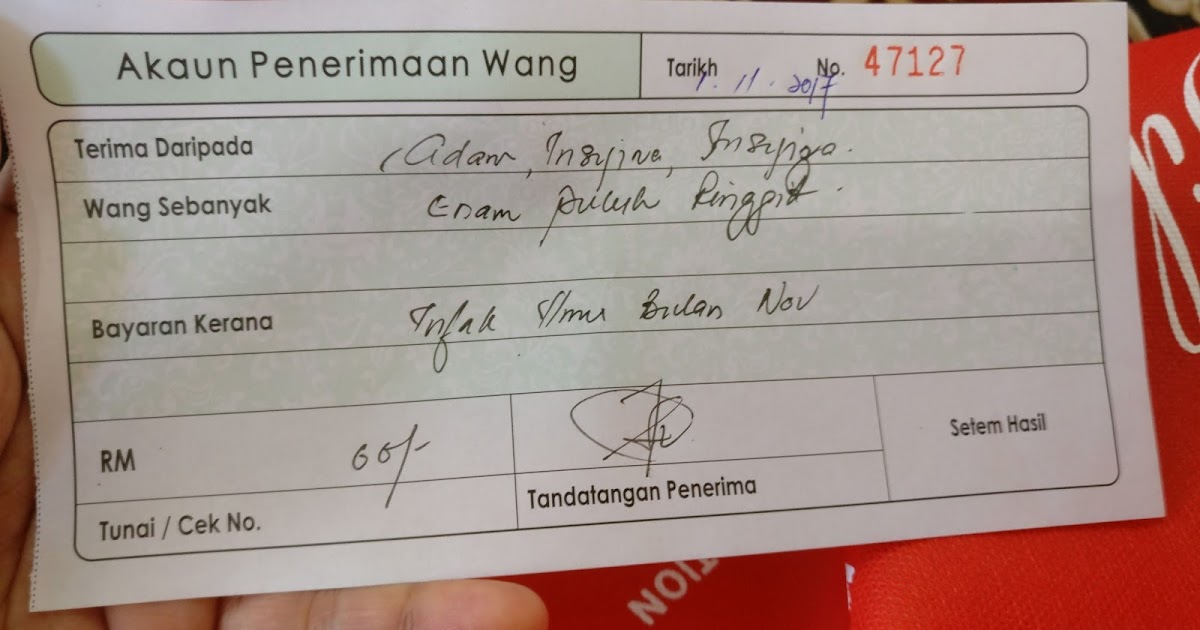 Akaun Penerimaan Wang
Tarikh 7.11.2017 No. 47127
Terima Daripada Adam, Insyira, Insyiqa.
Wang Sebanyak Enam Puluh Ringgit.
Bayaran Kerana Infak Ilmu Bulan Nov
RM 60/-
Setem Hasil
Tandatangan Penerima
Tunai / Cek No.
TION